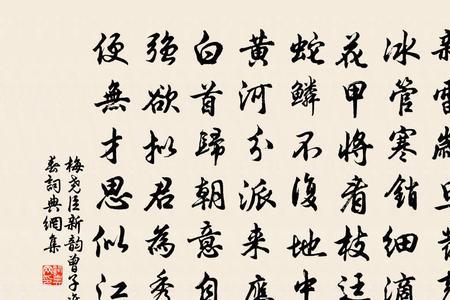 冰管寒銷細滴
花甲將看枝
蛇鱗不復地中
黄河分派来應
白首歸朝意自
強欲拟君為秀
便無才思似江
梅尧臣新韵曾子
詞典網集